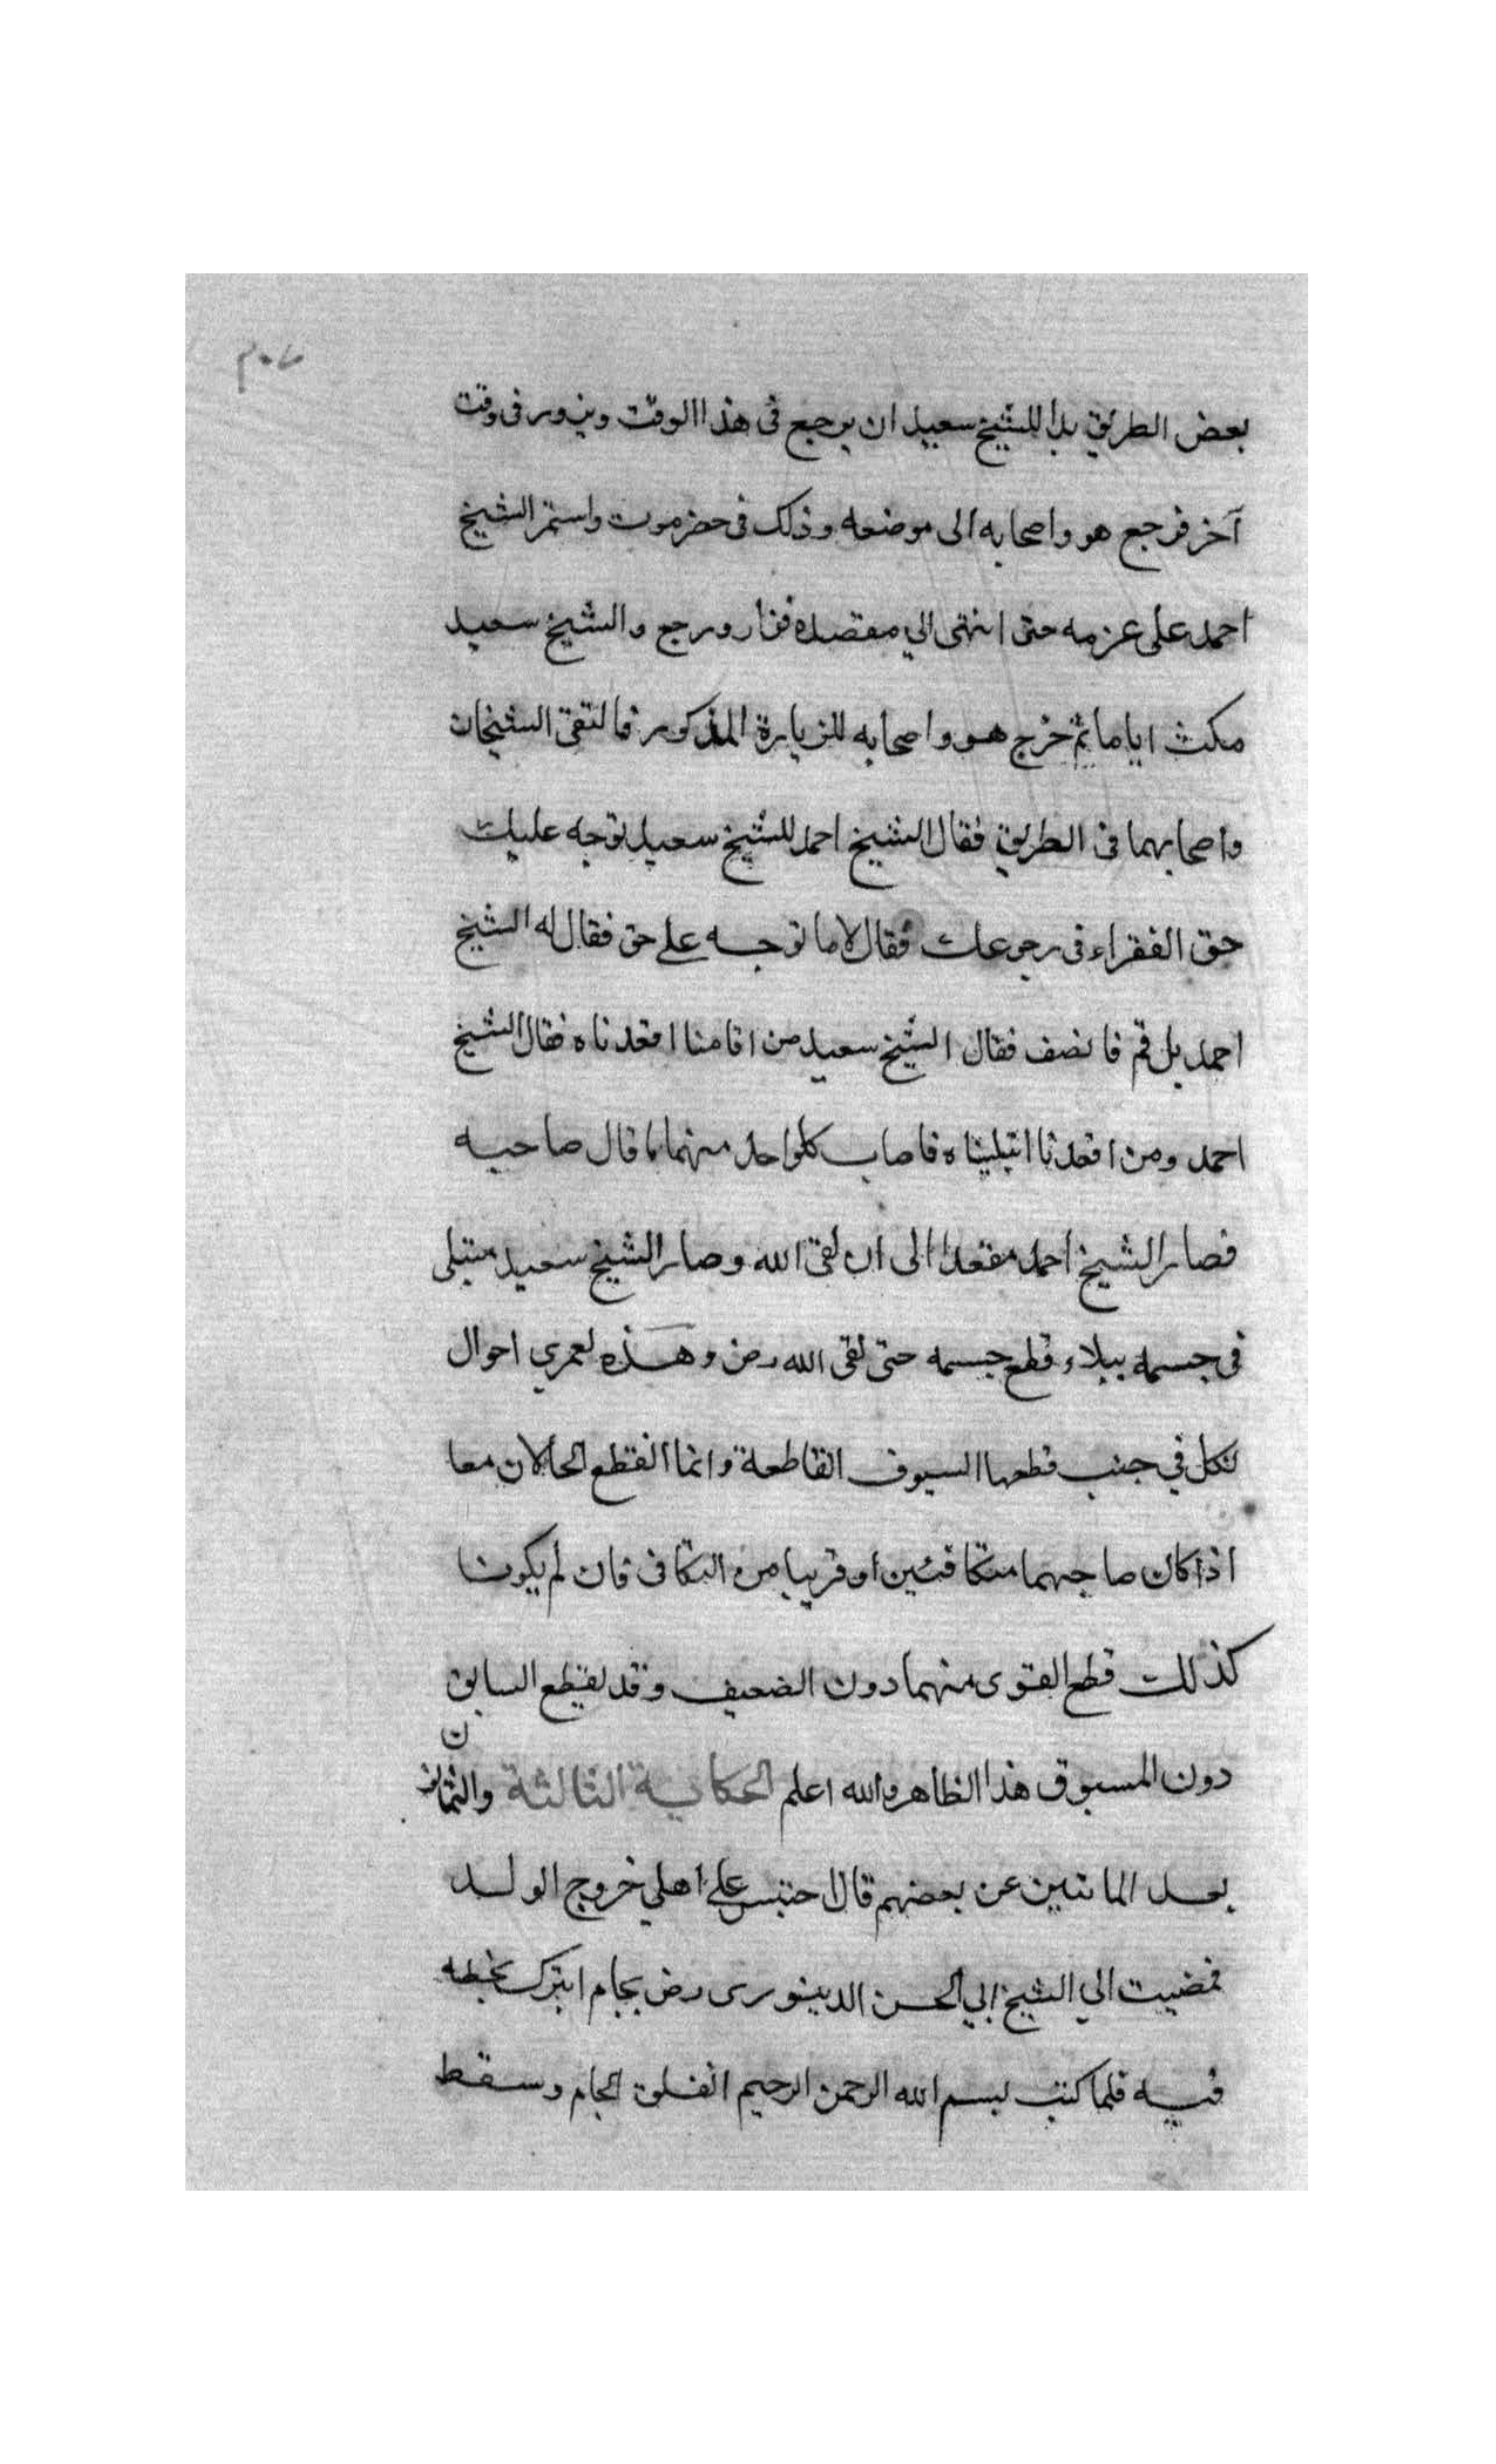 ٢٠٧
بعض الطريق بدا للشيخ سعيد ان يرجع في هذا الوقت ويزور في وقت
آخر فرجع هو واصحابه الى موضعه وذلك في حضرموت واستمر الشيخ
احمد على عزمه حتى انتهى الي مقصده فزار ورجع والشيخ سعيد
مكث اياما ثم خرج هو واصحابه للزيارة المذكور فالتقى الشيخان
واصحابهما في الطريق فقال الشيخ احمد للشيخ سعيد توجه عليك
حق الفقراء في رجوعك فقال لا ما توجه على حق فقال له الشيخ
احمد بل قم فانصف فقال الشيخ سعيد من اقامنا اقعدناه فقال الشيخ
احمد ومن اقعدنا ابتليناه فاصاب كلواحد منهما ما قال صاحبه
فصار الشيخ احمد مقعدا الى ان لقى الله وصار الشيخ سعيد مبتلى
في جسمه ببلاء قطع جسمه حتى لقى الله رض وهذه لعمري احوال
لكل في جنب قطعها السيوف القاطعة وانما انقطع الحالان معا
اذا كان صاحبهما متكافئين او قريبا من التكافى فان لم يكونا
كذلك قطع القوى منهما دون الضعيف وقد يقطع السابق
دون المسبوق هذا الظاهر والله اعلم الحكاية الثالثة والثمانون
بعد المائتين عن بعضهم قال احتبس على اهلي خروج الولد
فمضيت الي الشيخ ابي الحسن الدينورى رض بجام ابترك بخطه
فيه فلما كتب بسم الله الرحمن الرحيم انفلق الجام وسقط